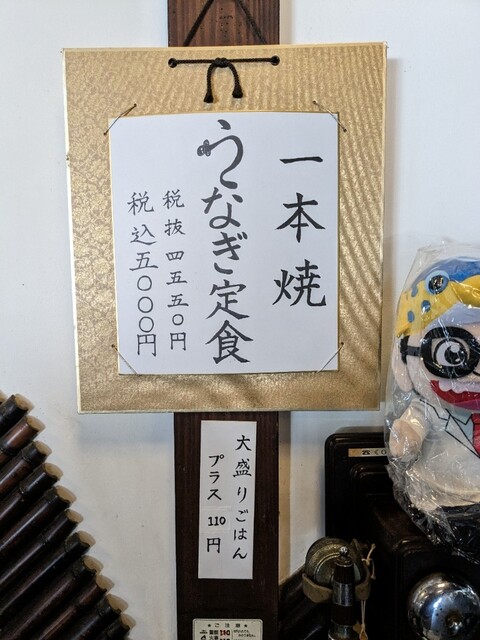 一本焼
うなぎ定食
税抜四五五〇円
税込五〇〇〇円
大盛りごはん
プラス110円